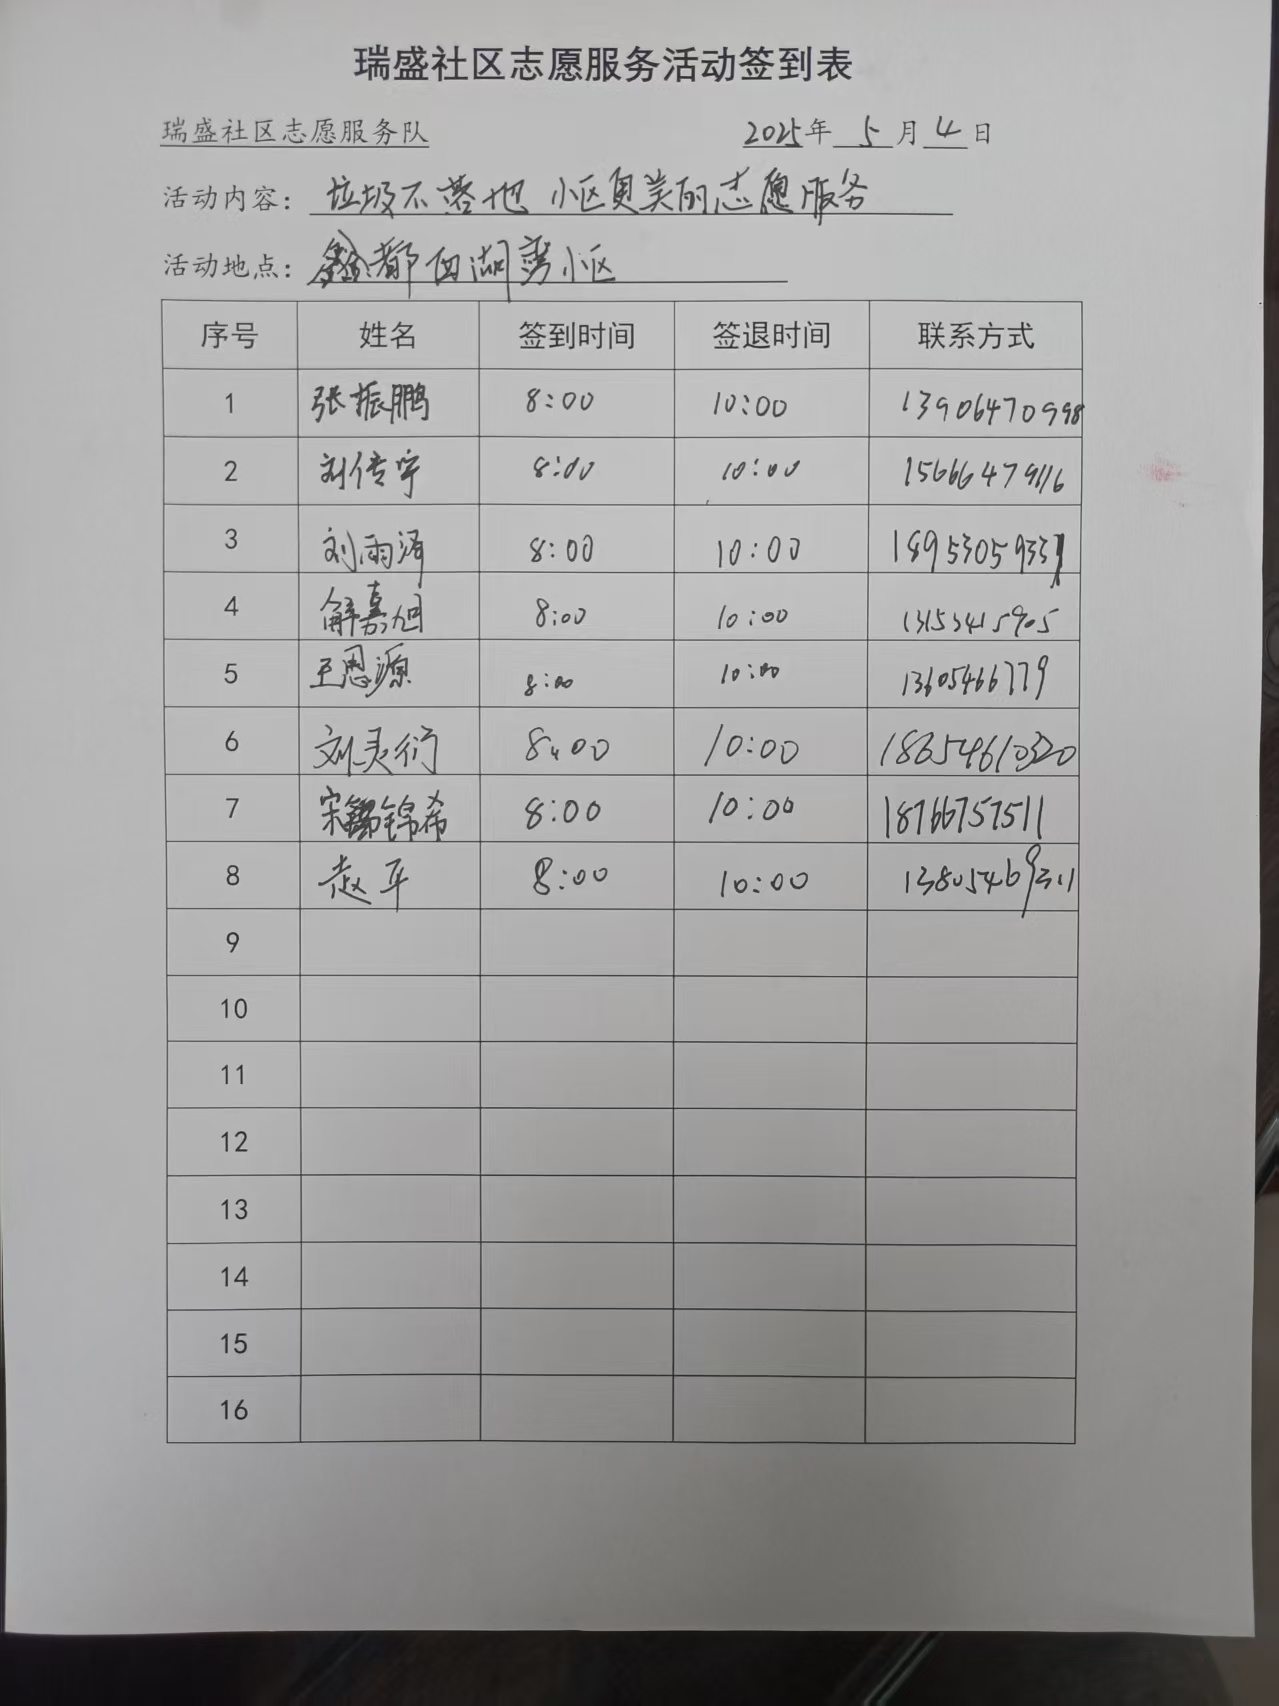 瑞盛社区志愿服务活动签到表
瑞盛社区志愿服务队 2025年 5 月 4 日
活动内容: 垃圾不落地 小区更美丽志愿服务
活动地点: 鑫都西湖湾小区
序号 姓名 签到时间 签退时间 联系方式
1 张振鹏 8:00 10:00 13906470998
2 刘传宇 8:00 10:00 15666479116
3 刘雨泽 8:00 10:00
4 解嘉旭 8:00 10:00 13153415905
5 王恩源 8:00 10:00 13605466779
6 刘灵衍 8:00 10:00 18654610320
7 宋锦希 8:00 10:00 18766757511
8 赵平 8:00 10:00 13805469311
9
10
11
12
13
14
15
16